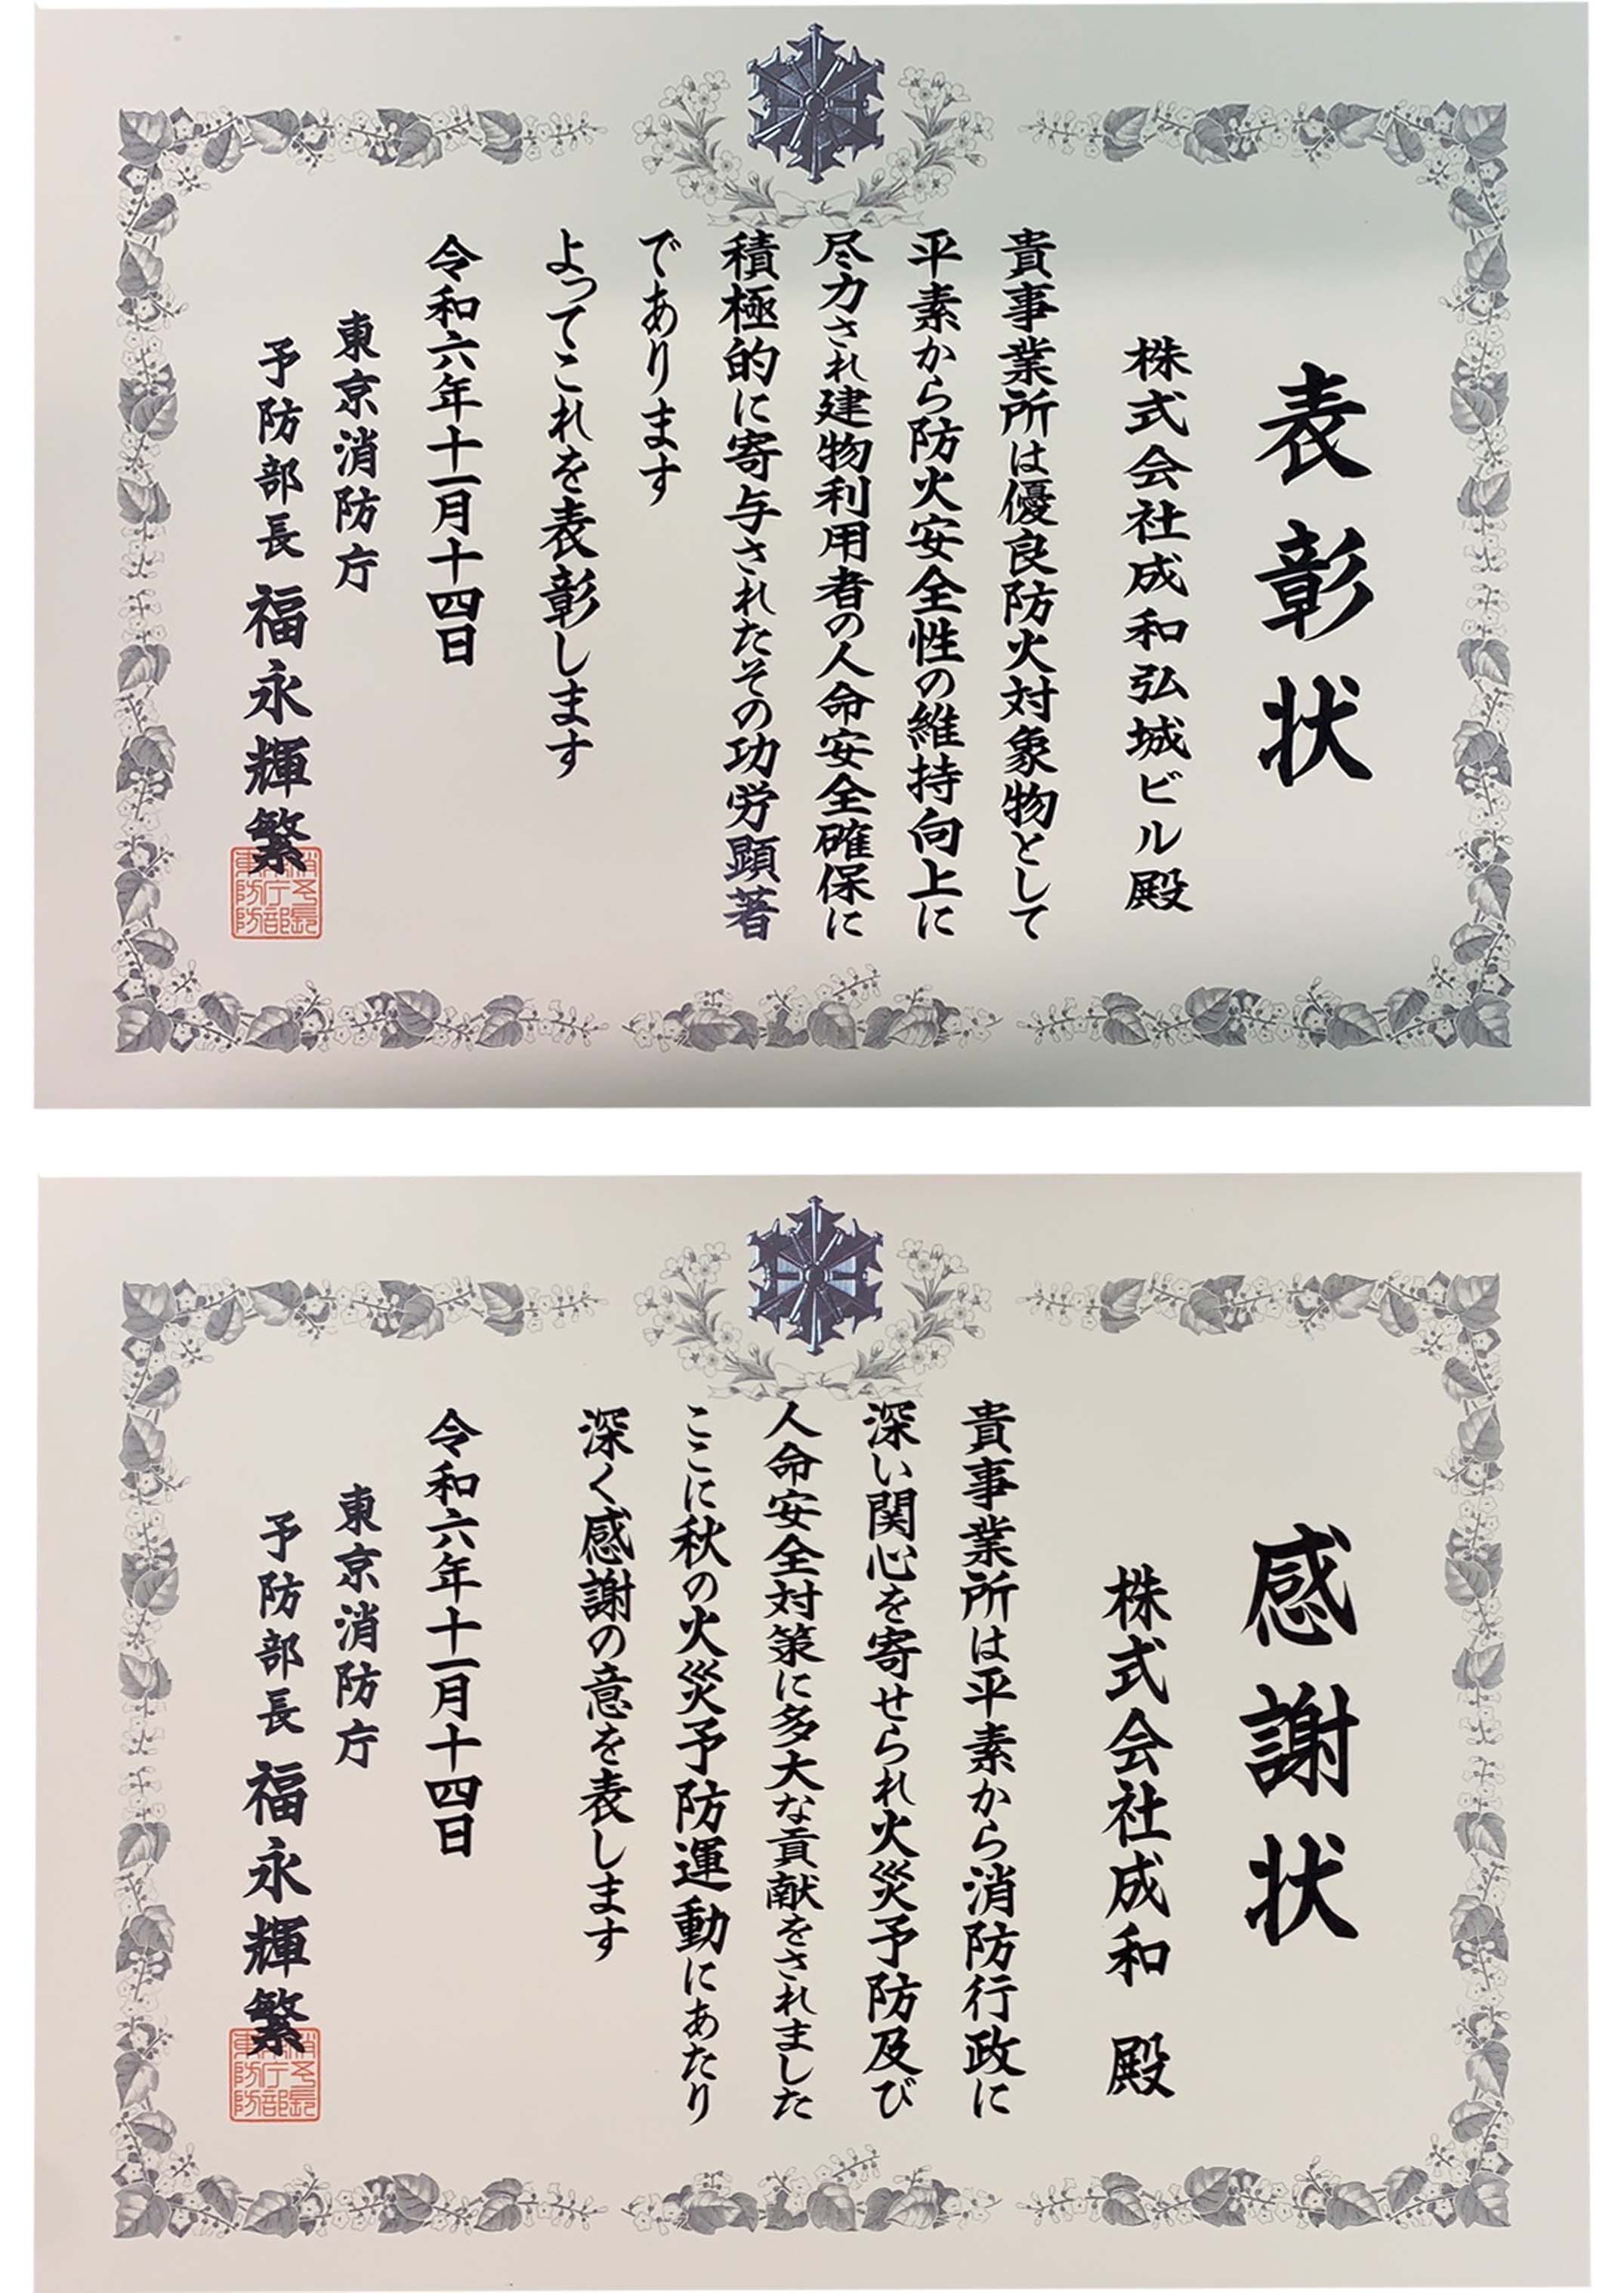 表彰状
株式会社成和弘城ビル殿
貴事業所は優良防火対象物として
平素から防火安全性の維持向上に
尽力され建物利用者の人命安全確保に
積極的に寄与されたその功労顕著
であります
よってこれを表彰します
令和六年十一月十四日
東京消防庁
予防部長 福永輝繁
感謝状
株式会社成和 殿
貴事業所は平素から消防行政に
深い関心を寄せられ火災予防及び
人命安全対策に多大な貢献をされました
ここに秋の火災予防運動にあたり
深く感謝の意を表します
令和六年十一月十四日
東京消防庁
予防部長 福永輝繁